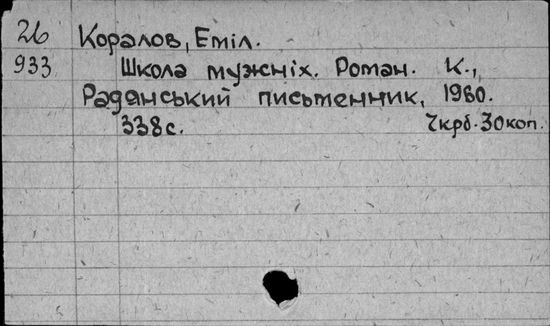 26 Коралов, Еміл.
933 Школа мужніх. Роман. К.,
Радянський письменник, 1960.
338с. 7крб.30коп.